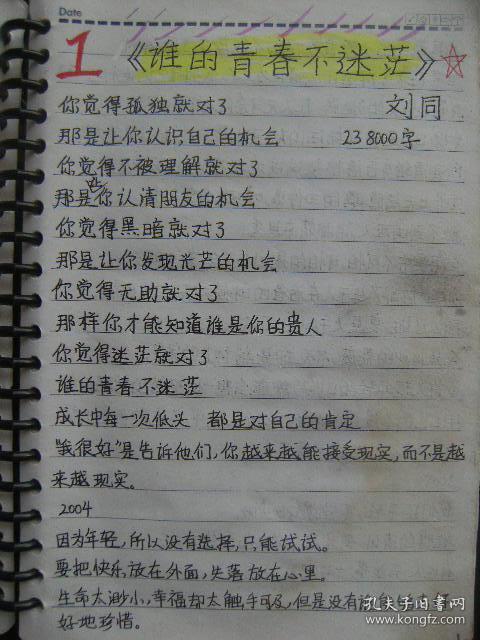 Date
1 《谁的青春不迷茫》
你觉得孤独就对了 刘同
那是让你认识自己的机会 238000字
你觉得不被理解就对了
那是让你认清朋友的机会
你觉得黑暗就对了
那是让你发现光芒的机会
你觉得无助就对了
那样你才能知道谁是你的贵人
你觉得迷茫就对了
谁的青春不迷茫
成长中每一次低头 都是对自己的肯定
"我很好"是告诉他们,你越来越能接受现实,而不是越
来越现实。
2004
因为年轻,所以没有选择,只能试试。
要把快乐放在外面,失落放在心里。
生命太渺小,幸福却太触手可及,但是没有
好地珍惜。
孔夫子旧书网
www.kongfz.com